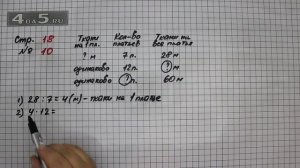 4DA5.RU
Стр. 18
№ 10
Ткани на 1 пл.
Кол-во платьев
Ткани на все платья
? м
7 п.
28 м
одинаково
12 п.
? м
одинаково
? п.
60 м
1) 28 : 7 = 4 (м) - ткани на 1 платье
2) 4 · 12 =